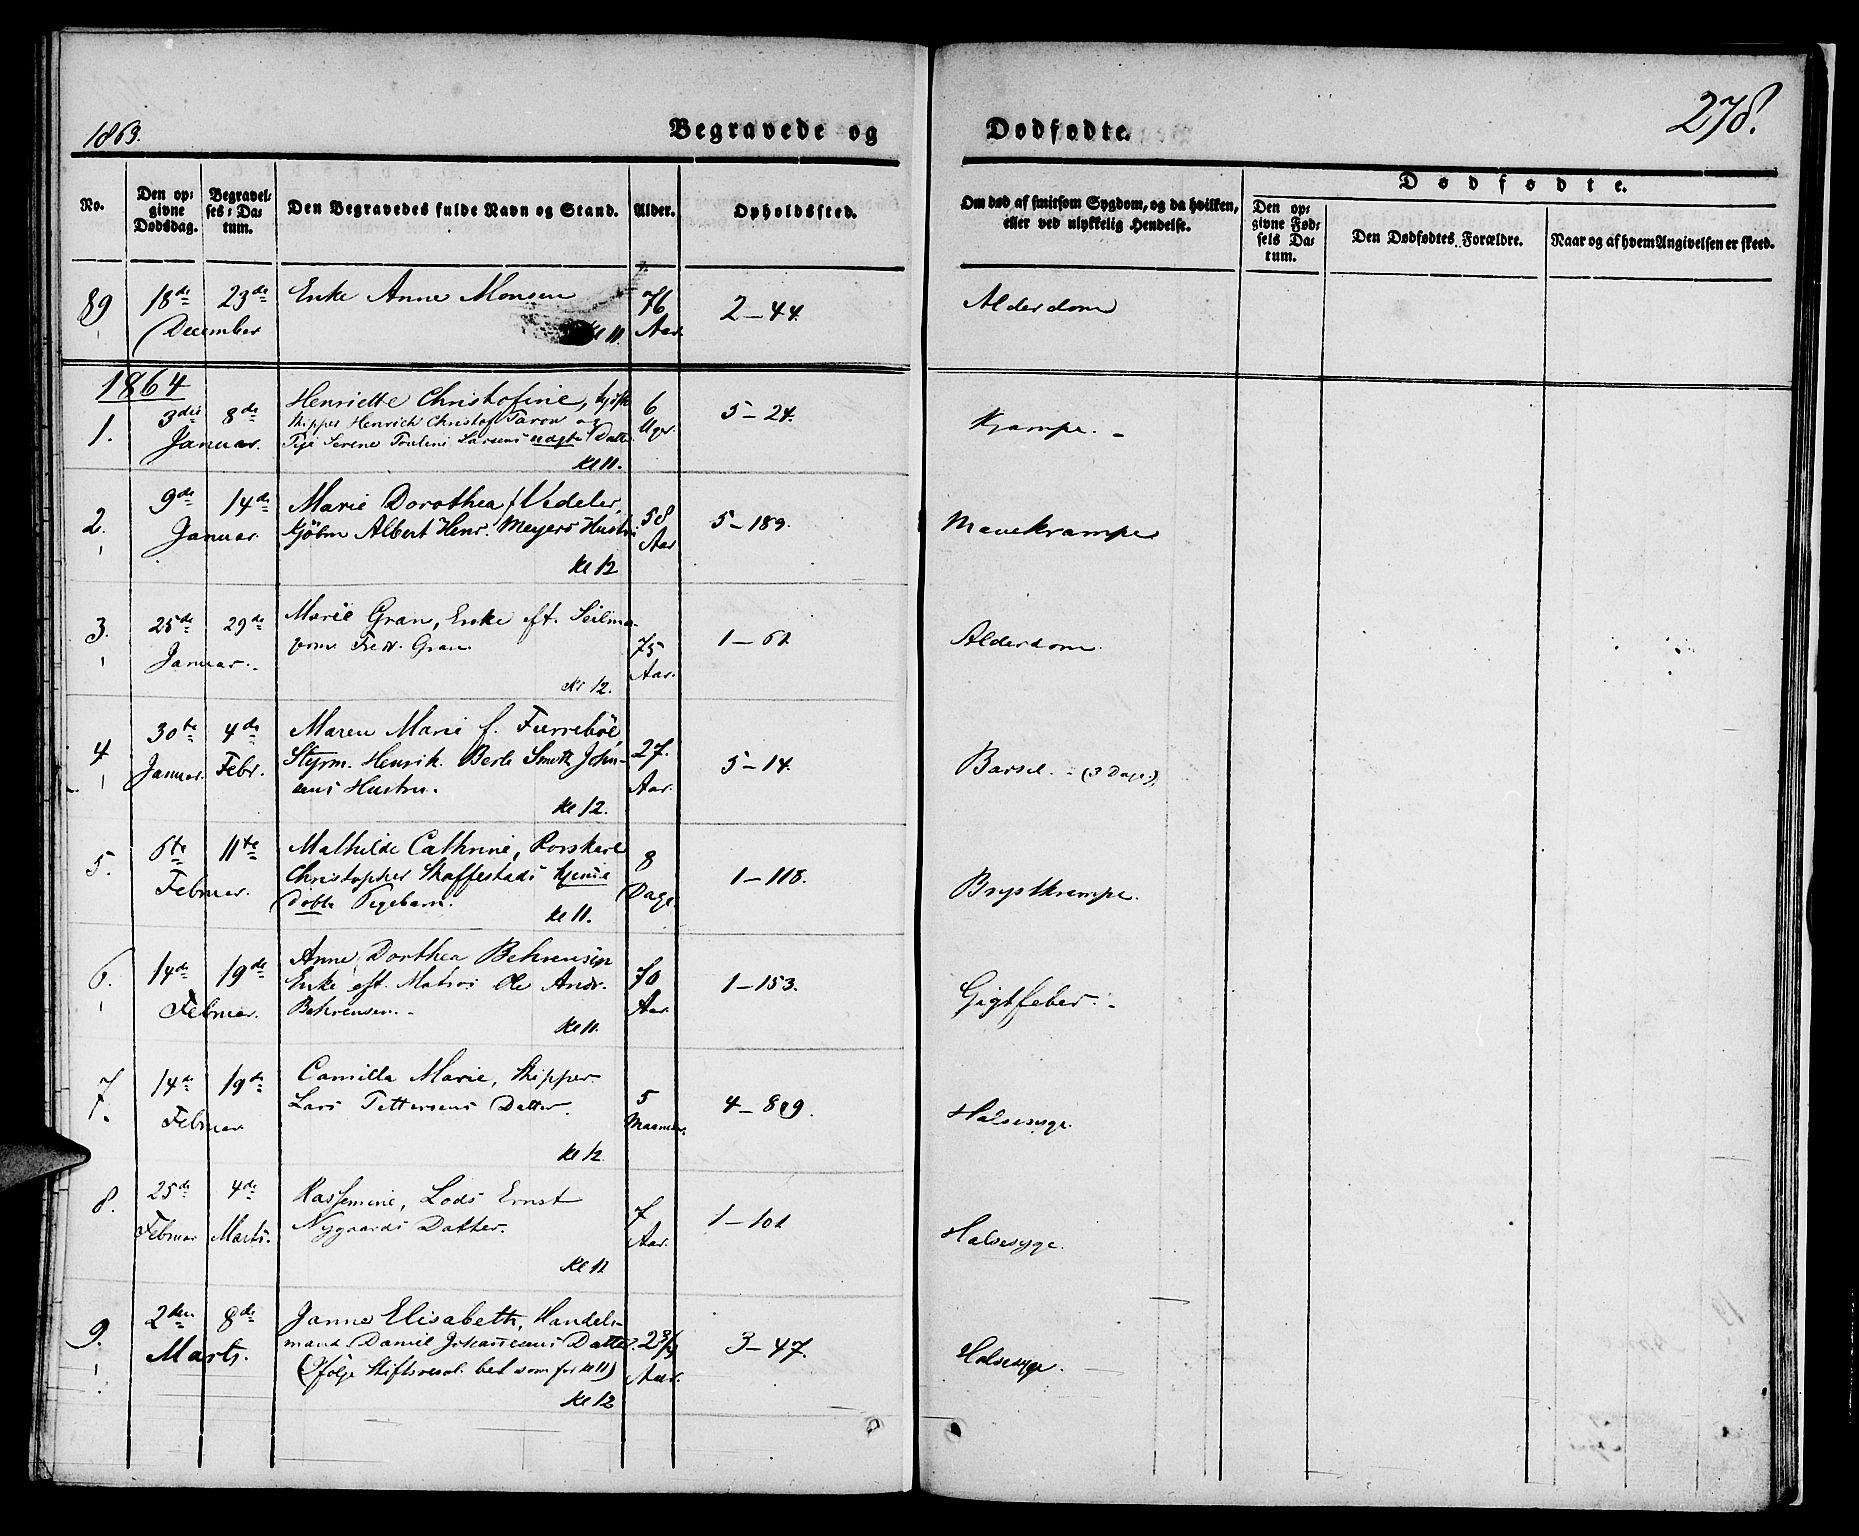 1863.
Begravede og Dødfødte.
278.
No.
Den opgivne Dødsdag.
Begravelses-Datum.
Den Begravedes fulde Navn og Stand.
Alder.
Opholdssted.
Om død af smitsom Sygdom, og da hvilken, eller ved ulykkelig Hendelse.
Dødfødte.
Den opgivne Fødsels Datum.
Den Dødfødtes Forældre.
Naar og af hvem Angivelsen er skeed.
89 18de 23de Enke Anne Monsen 76 2-44. Alderdom
December Kl 11. Aar.
1864
1. 3die 8de Henriette Christofine, 6 5-24. Krampe.
Januar. Skipper Henrich Christof Uger.
Pige Serene Larsens uægte Datter
Kl 11.
2. 9de 14de Marie Dorothea f. Vedeler, 58 5-189. Mavekrampe
Januar. Kjøbm Albert Henr. Meyers Hustru Aar
Kl 12
3. 25de 29de Marie Gran, Enke eft. Seilma- 75 1-61. Alderdom.
Januar. Fredr. Gran. Aar.
Kl 12.
4 30te 4de Maren Marie f. 27. 5-14. Barsel. - (3 Dage),
Januar. Febr. Styrm. Henrik Smith John- Aar.
sens Hustru.
Kl 12.
5. 6te 11te Mathilde Cathrine, Rorskarl 8 1-118. Brystkrampe.
Februar. Christopher Skaffestads hjemme Dage.
døbte Pigebarn. Kl 11.
6. 14de 19de Anne Dorthea Behrensen 70 1-153. Gigtfeber.
Februar. Enke eft. Matros Ole Andr. Aar.
Behrensen. Kl 11.
7. 14de 19de Camilla Marie, Skipper 5 4-809. Halsesyge.
Februar. Lars Pettersens Datter. Maaneder.
Kl 12
8. 25de 4de Rassemine, Lods Ernst 7 1-101 Halsesyge.
Februar Marts. Nygaards Datter. Aar.
Kl 11
9. 2den 8de Janna Elisabeth, Handels- 3-47. Halsesyge.
Marts. mand Daniel Johannesens Datter. Aar.
(Ifølge Stiftsresol. bet som for Kl 11)
Kl 12